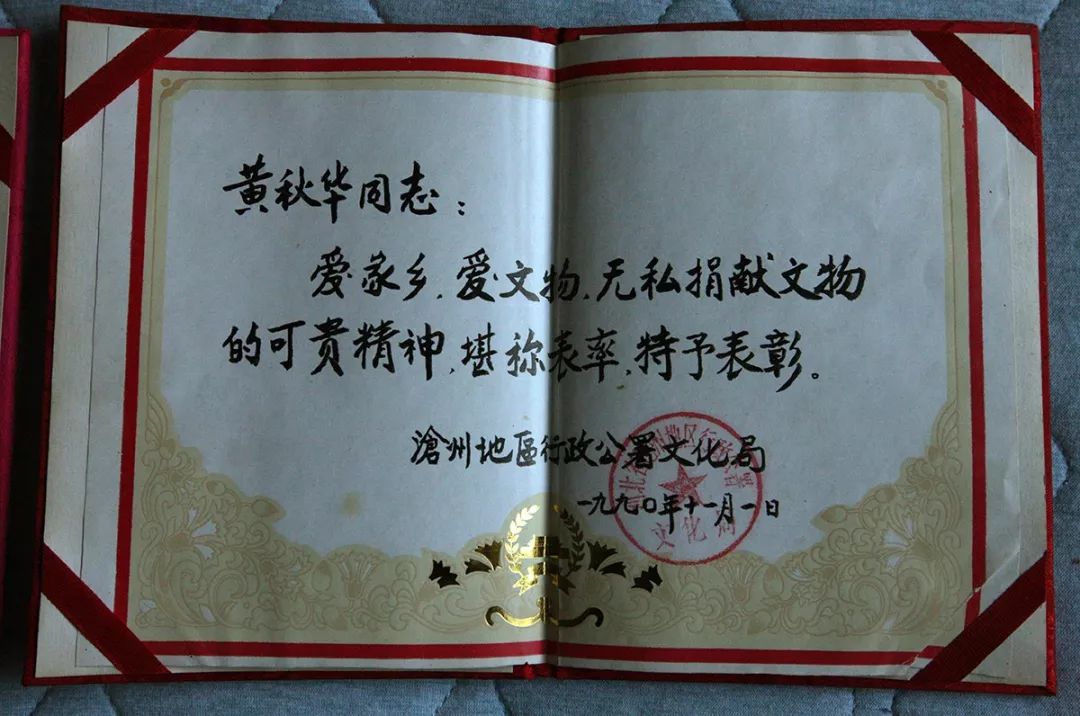 黄秋华同志：
爱家乡，爱文物，无私捐献文物
的可贵精神，堪称表率，特予表彰。
滄州地區行政公署文化局
一九九〇年十一月一日
文化局